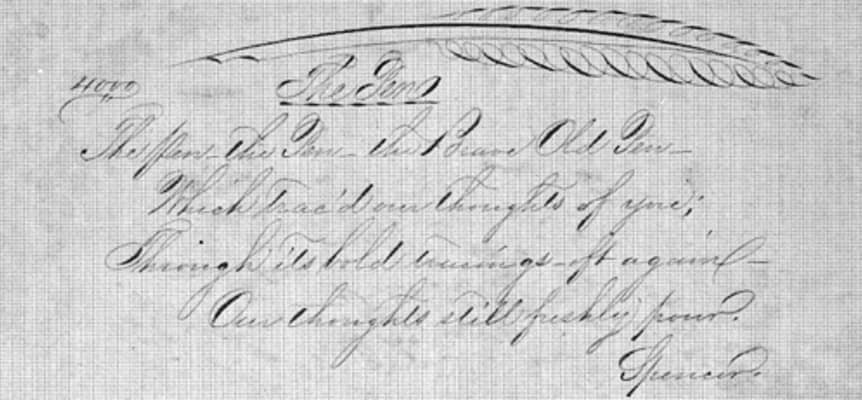 4000
The Pen
The pen - the Pen - the Brave Old Pen -
Which trac'd our thoughts of yore;
Through its bold tracings - oft again -
Our thoughts still freshly pour.
Spencer.